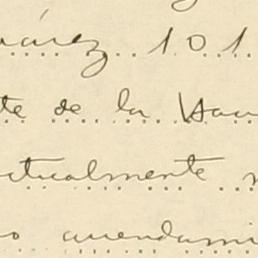 uárez, 101
te de la Hac
ctualmente
o arrendami